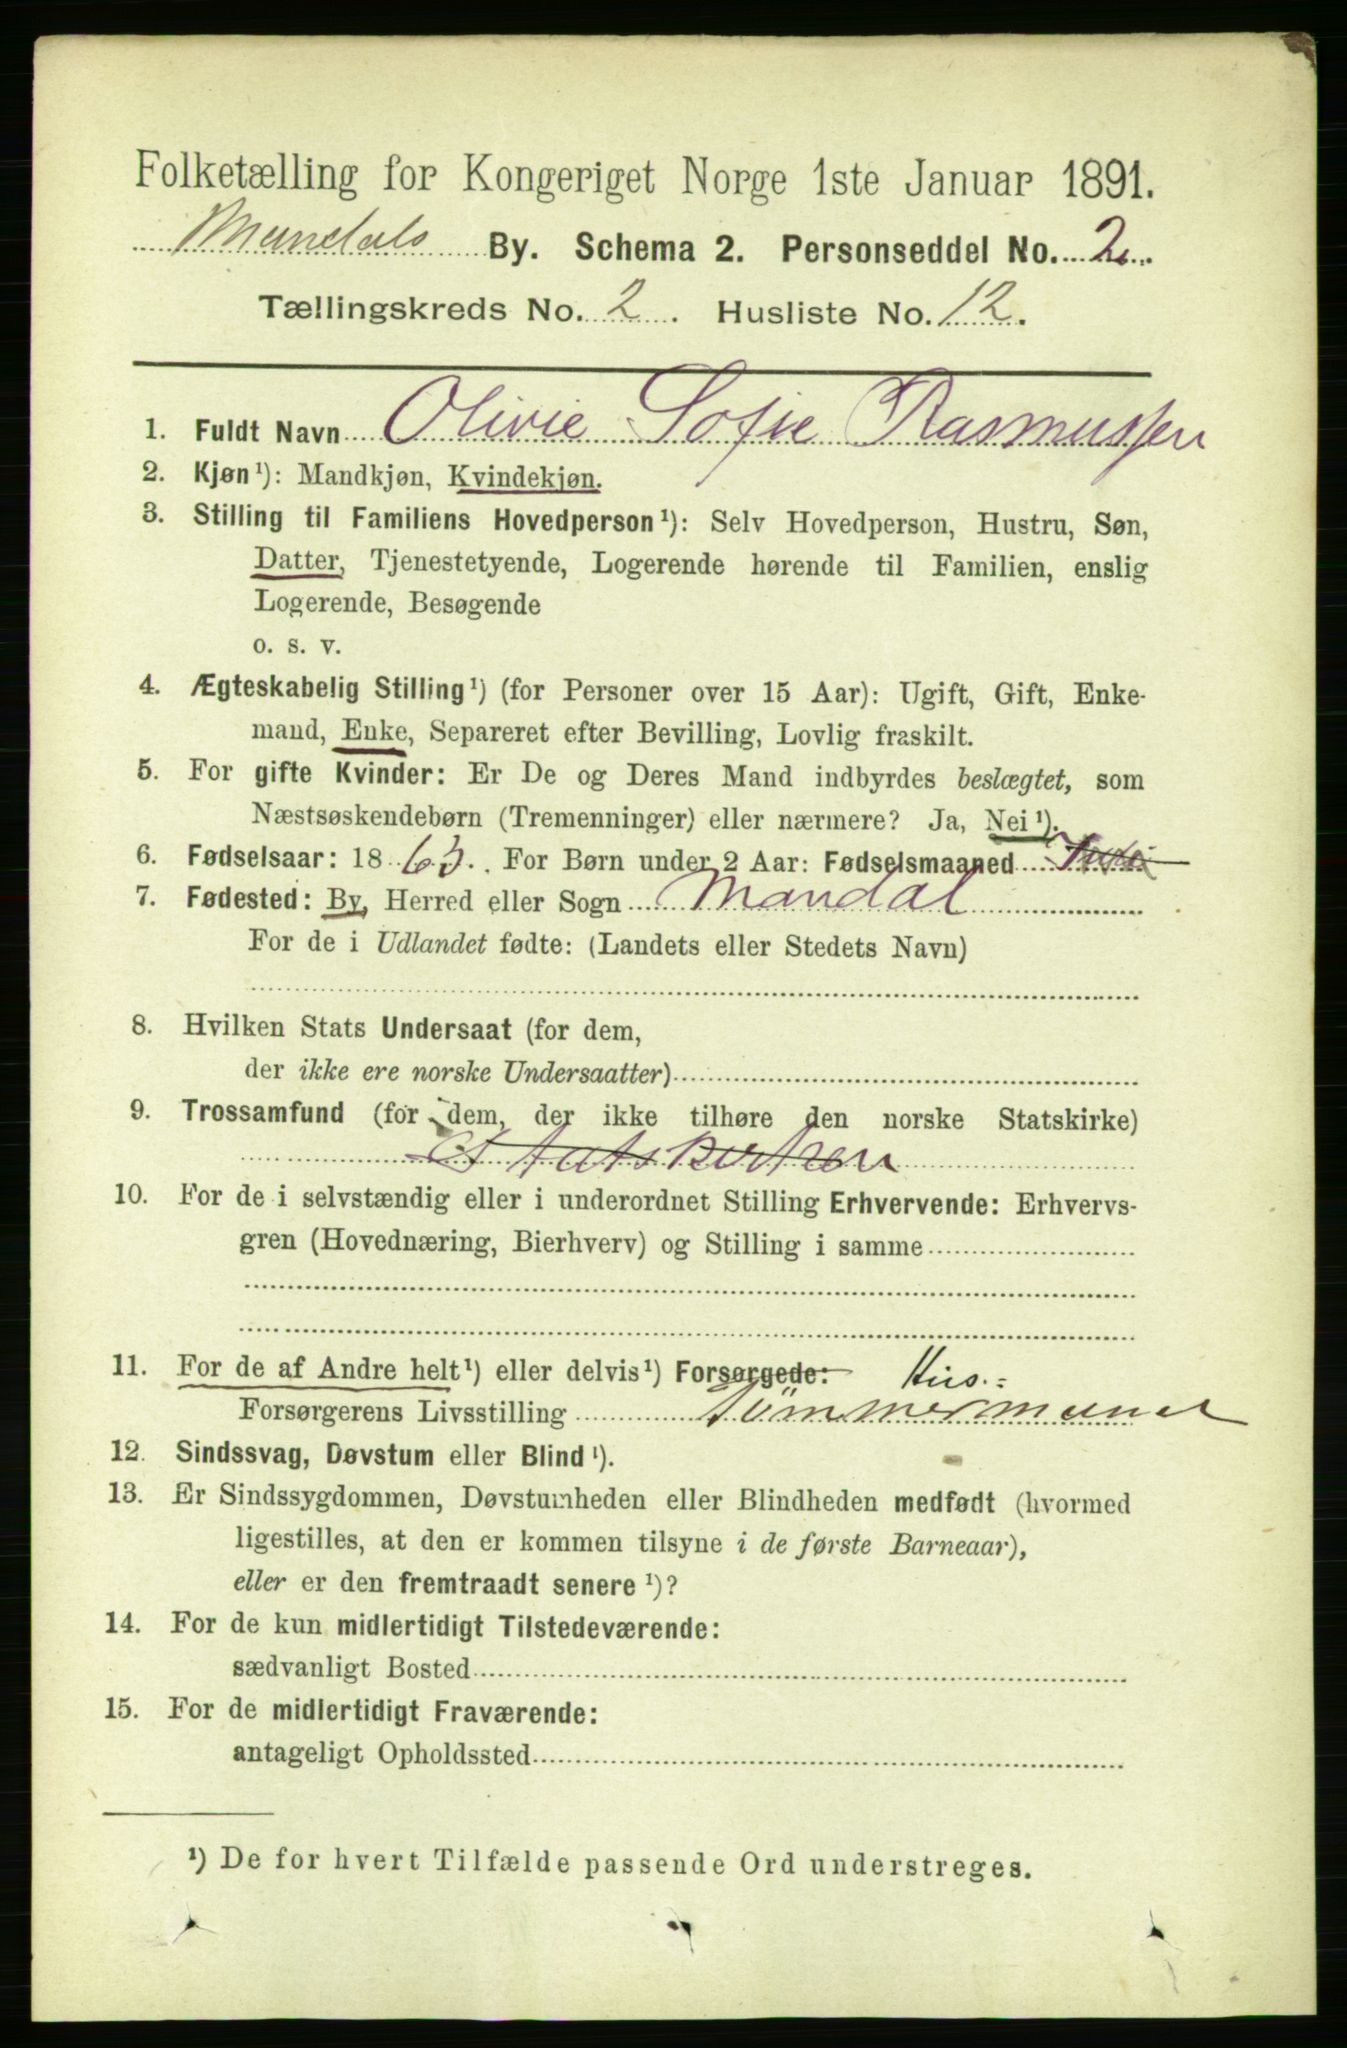 Folketælling for Kongeriget Norge 1ste Januar 1891.
Mandals By. Schema 2. Personseddel No. 2.
Tællingskreds No. 2. Husliste No. 12.
1. Fuldt Navn Olivie Sofie Rasmussen
2. Kjøn ¹): Mandkjøn, Kvindekjøn.
3. Stilling til Familiens Hovedperson ¹): Selv Hovedperson, Hustru, Søn,
Datter, Tjenestetyende, Logerende hørende til Familien, enslig
Logerende, Besøgende
o. s. v.
4. Ægteskabelig Stilling ¹) (for Personer over 15 Aar): Ugift, Gift, Enke-
mand, Enke, Separeret efter Bevilling, Lovlig fraskilt.
5. For gifte Kvinder: Er De og Deres Mand indbyrdes beslægtet, som
Næstsøskendebørn (Tremenninger) eller nærmere? Ja, Nei ¹).
6. Fødselsaar: 1863. For Børn under 2 Aar: Fødselsmaaned
7. Fødested: By, Herred eller Sogn Mandal
For de i Udlandet fødte: (Landets eller Stedets Navn)
8. Hvilken Stats Undersaat (for dem,
der ikke ere norske Undersaatter)
9. Trossamfund (for dem, der ikke tilhøre den norske Statskirke)
Statskirken
10. For de i selvstændig eller i underordnet Stilling Erhvervende: Erhvervs-
gren (Hovednæring, Bierhverv) og Stilling i samme
11. For de af Andre helt ¹) eller delvis ¹) Forsørgede: Hus-
Forsørgerens Livsstilling Tømmermand
12. Sindssvag, Døvstum eller Blind ¹).
13. Er Sindssygdommen, Døvstumheden eller Blindheden medfødt (hvormed
ligestilles, at den er kommen tilsyne i de første Barneaar),
eller er den fremtraadt senere ¹)?
14. For de kun midlertidigt Tilstedeværende:
sædvanligt Bosted
15. For de midlertidigt Fraværende:
antageligt Opholdssted
¹) De for hvert Tilfælde passende Ord understreges.